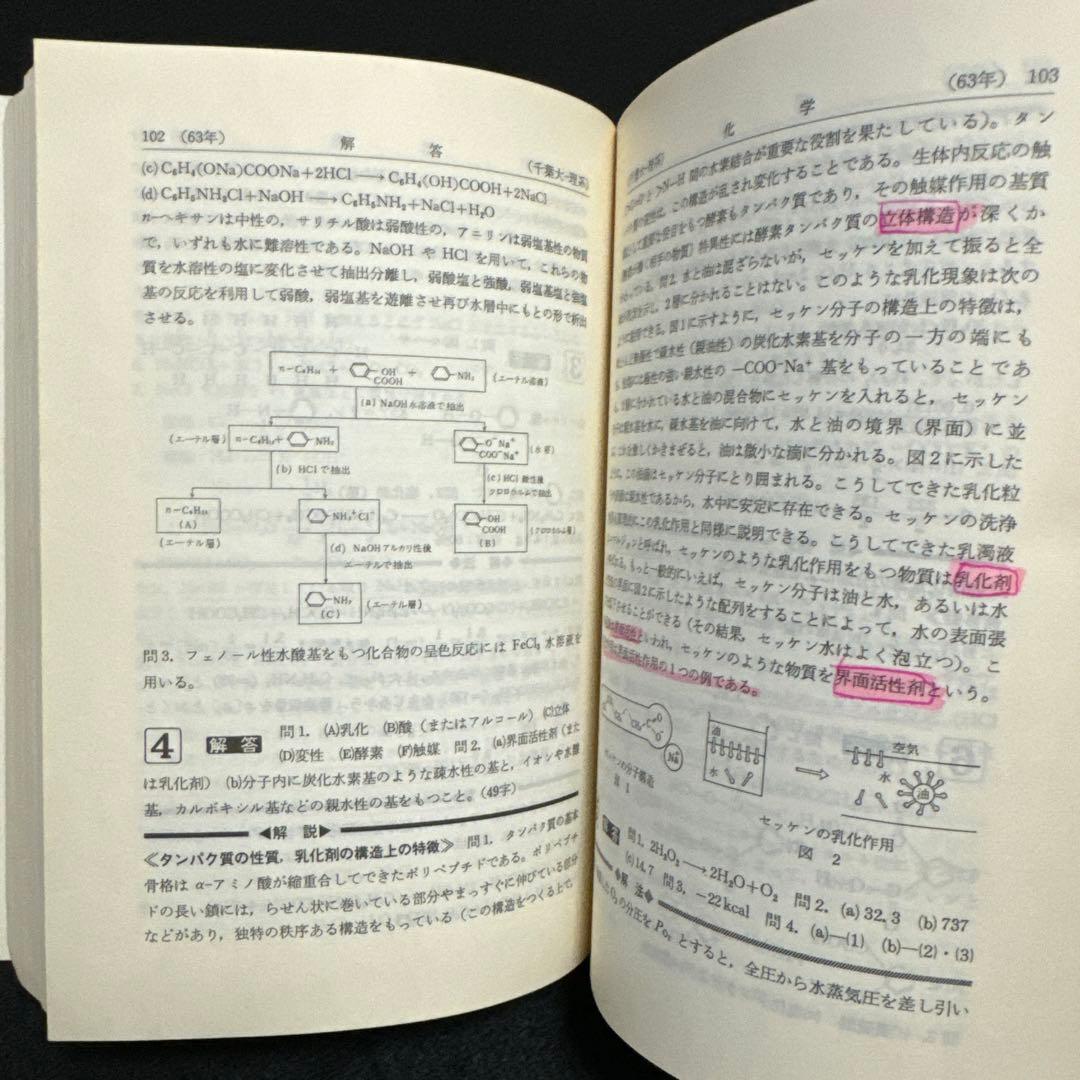 102 (63年) 解 答 (千葉大―理系)
(c) C₆H₄(ONa)COONa+2HCl→C₆H₄(OH)COOH+2NaCl
(d) C₆H₅NH₃Cl+NaOH→C₆H₅NH₂+NaCl+H₂O
n-ヘキサンは中性の，サリチル酸は弱酸性の，アニリンは弱塩基性の物質
で，いずれも水に難溶性である。NaOH や HCl を用いて，これらの物
質を水溶性の塩に変化させて抽出分離し，弱酸塩と強酸，弱塩基塩と強塩
基の反応を利用して弱酸，弱塩基を遊離させ再び水層中にもとの形で析出
させる。
n-C₆H₁₄ + OH COOH + NH₂ (エーテル溶液)
(a) NaOH水溶液で抽出
(エーテル層) n-C₆H₁₄+ NH₂
O⁻Na⁺ COO⁻Na⁺ (水層)
(b) HClで抽出
(c) HCl酸性後
クロロホルムで抽出
n-C₆H₁₄ (A)
(エーテル層)
NH₃⁺Cl⁻
OH COOH (B) (クロロホルム層)
(d) NaOHアルカリ性後
エーテルで抽出
NH₂ (C) (エーテル層)
問3. フェノール性水酸基をもつ化合物の呈色反応には FeCl₃ 水溶液を
用いる。
4 解答 問1. (A)乳化 (B)酸（またはアルコール） (C)立体
(D)変性 (E)酵素 (F)触媒 問2. (a)界面活性剤（また
は乳化剤） (b)分子内に炭化水素基のような疎水性の基と，イオンや水酸
基，カルボキシル基などの親水性の基をもつこと。(49字)
◀解 説▶
≪タンパク質の性質，乳化剤の構造上の特徴≫ 問1. タンパク質の基本
骨格は α-アミノ酸が縮重合してできたポリペプチドである。ポリペプチ
ドの長い鎖には，らせん状に巻いている部分やまっすぐに伸びている部分
などがあり，独特の秩序ある構造をもっている（この構造をつくる上で，
(63年) 103
化 学
N―H 間の水素結合が重要な役割を果たしている）。タン
この構造が乱され変化することである。生体内反応の触
酵素もタンパク質であり，その触媒作用の基質
特異性には酵素タンパク質の立体構造が深くか
問2. 水と油は混ざらないが，セッケンを加えて振ると全
2層に分かれることはない。このような乳化現象は次の
図1に示すように，セッケン分子の構造上の特徴は，
疎水性（親油性）の炭化水素基を分子の一方の端にも
極性の強い親水性の ―COO⁻Na⁺ 基をもっていることであ
水と油の混合物にセッケンを入れると，セッケン
疎水基を油に向けて，水と油の境界（界面）に並
かきまぜると，油は微小な滴に分かれる。図2に示した
この油滴はセッケン分子にとり囲まれる。こうしてできた乳化粒
親水性であるから，水中に安定に存在できる。セッケンの洗浄
この乳化作用と同様に説明できる。こうしてできた乳濁液
と呼ばれ，セッケンのような乳化作用をもつ物質は乳化剤
もっと一般的にいえば，セッケン分子は油と水，あるいは水
図2に示したような配列をすることによって，水の表面張
させることができる（その結果，セッケン水はよく泡立つ）。こ
といわれ，セッケンのような物質を界面活性剤という。
界面活性作用の1つの例である。
油
水
空気
水
油
セッケンの分子構造
図 1
セッケンの乳化作用
図 2
問1. 2H₂O₂→2H₂O+O₂ 問2. (a) 32.3 (b) 737
(c) 14.7 問3. −22kcal 問4. (a)―(1) (b)―(2)・(3)
◆解 法◆
O₂の分圧を Po₂ とすると，全圧から水蒸気圧を差し引い